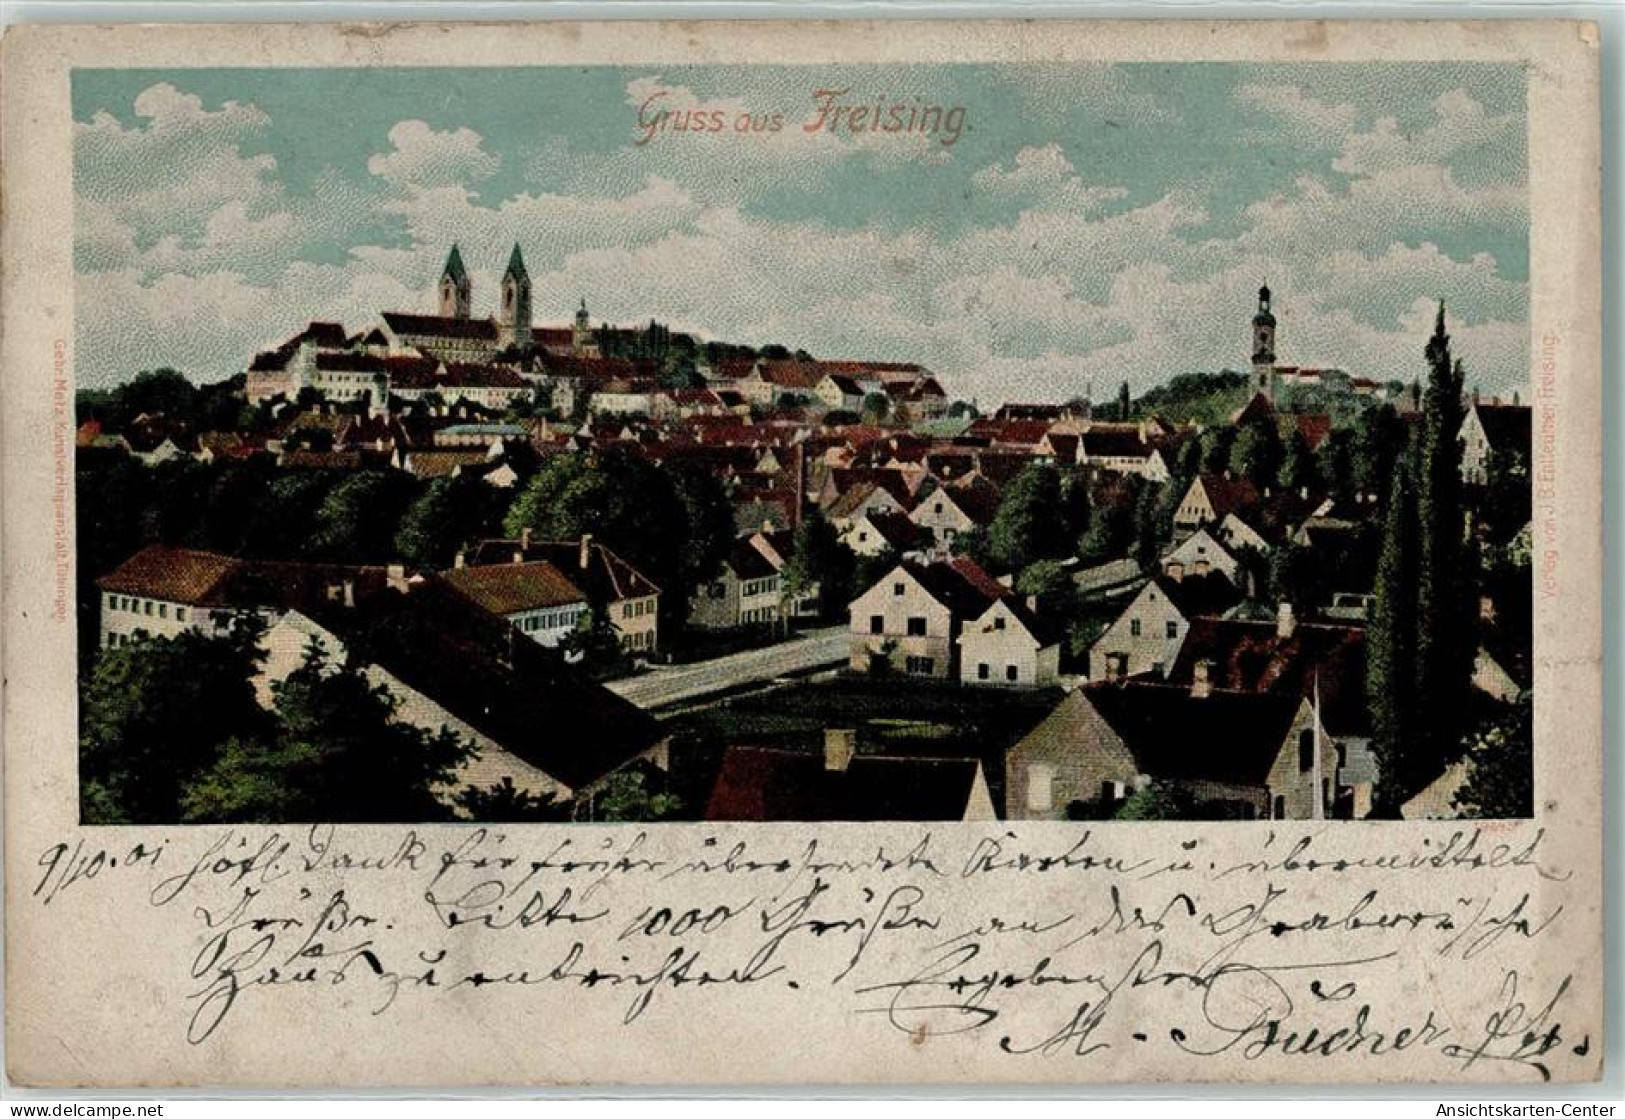 Gruss aus Freising.
Gebr. Metz, Kunstverlagsanstalt, Tübingen
Verlag von J. B. Entleutner, Freising.
9/10.01 höfl. Dank für früher übersendete Karten u. übermittelt
Grüße. Bitte 1000 Grüße an das Grabw
Haus zu entrichten. Ergebenster
M. Büchner
delcampe.net
Ansichtskarten-Center